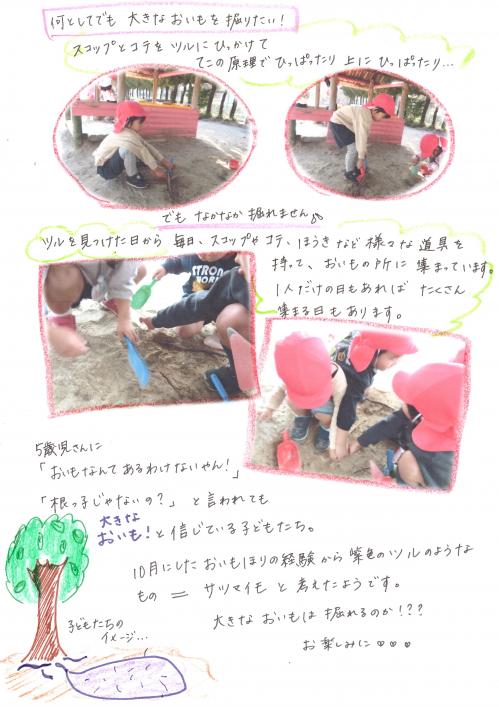 何としてでも 大きな おいもを 掘りたい！
スコップとコテを ツルに ひっかけて
てこの 原理で ひっぱったり 上に ひっぱったり…
でも なかなか 掘れません
ツルを見つけた日から 毎日、スコップや コテ、ほうきなど 様々な 道具を
持って、おいもの所に 集まっています。
1人だけの日もあれば たくさん
集まる日も あります。
STRON
5歳児さんに
「おいもなんて あるわけ ないやん！」
「根っ子じゃないの？」 と 言われても
大きな
おいも！と 信じている 子どもたち。
10月にした おいもほりの経験から 紫色の ツルのような
もの ＝ サツマイモ と 考えたようです。
大きな おいもは 掘れるのか！？？
お楽しみに♡♡♡
子どもたちの
イメージ…